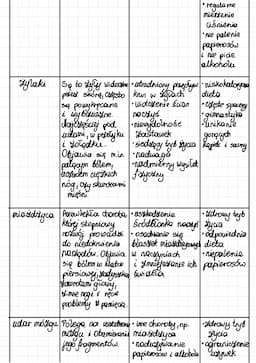 • regularne
mierzenie
ciśnienia
• nie palenie
papierosów
i nie picie
alkoholu
żylaki
Są to żyły widoczne
przez skórę, często
są powykręcane
i wybrzuszone
najczęściej pod
udami, w przełyku
i żołądku.
Objawia się m.in.
palącym bólem,
nóg, czy skurczami
mięśni
• utrudniony przepływ
krwi w żyłach
• zastawek
• siedzący tryb życia
• nadwaga
• nadmierny wysiłek
fizyczny
• niskokaloryczna
dieta
• częste spacery
• gimnastyka
unikanie
gorących
kąpieli i sauny
miażdżyca
Przewlekła choroba,
który stopniowy
rozwój prowadzi
do niedokrwienia
narządów. Objawia
się bólem w klatce
piersiowej,
zawrotami głowy,
zimne nogi i ręce
problemy z pamięcią
• uszkodzenie
śródbłonka naczyń
• osadzanie się
blaszek miażdżycowych
w naczyniach
i zmniejszanie ich
światła
• zdrowy tryb
życia
• odpowiednia
dieta
• niepalenie
papierosów
udar mózgu
Polega na uszkodzeniu
mózgu i obumieraniu
jego fragmentów.
• inne choroby, np.
miażdżyca
• nadużywanie
papierosów i alkoholu
• zdrowy tryb
życia
• ograniczenie